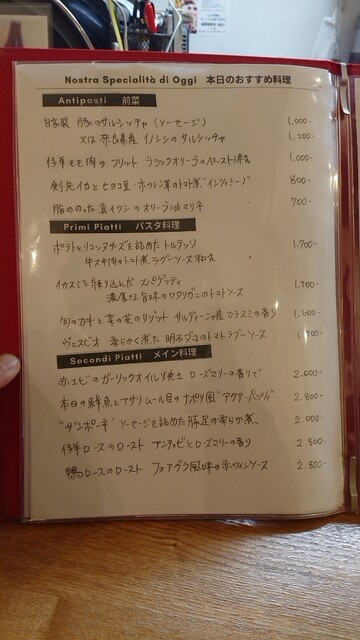 Nostra Specialità di Oggi 本日のおすすめ料理
Antipasti 前菜
自家製 豚のサルシッチャ（ソーセージ） 1,000-
又は 奈良県産 イノシシのサルシッチャ 1,200-
仔羊モモ肉のフリット ブラックオリーブのペースト添え 1,000-
剣先イカとヒヨコ豆・ホウレン草のトマト煮"インツィミーノ" 800-
脂ののった真イワシのオリーブ油マリネ 700-
Primi Piatti パスタ料理
ポテトとリコッタチーズを詰めたトルテッリ 1,700-
牛スネ肉のトマト煮ラグーソース和え
イカスミを練り込んだ スパゲッティ
濃厚な旨味のワタリガニのトマトソース 1,700-
旬のカキと菜の花のリゾット サルディーニャ産カラスミの香り 1,600-
ヴェスビオ 柔らかく煮た 明石ダコのトマトラグーソース 700-
Secondi Piatti メイン料理
赤エビのガーリックオイル焼き ローズマリーの香りで 2,000-
本日の鮮魚とアサリ ムール貝のナポリ風"アクア・パッツァ" 2,800-
"ザンポーネ" ソーセージを詰めた豚足の柔らか煮、 2,000-
仔羊ロースのロースト アンチョビとローズマリーの香り 2,800-
鴨ロースのロースト フォアグラ風味の赤ワインソース 2,800-